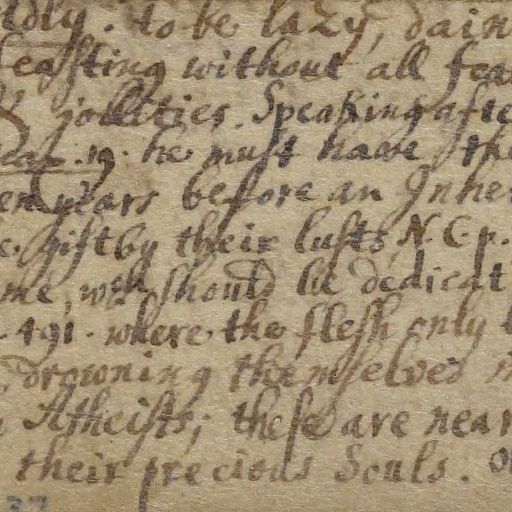 dly. to be lazy, dain
feasting without all fea
& jollities. Speaking afte
year. 19. he must have the
ten years before an Inhe
e. gift by their lusts, N. C. p.
me, wch should be dedicat
. 491. where the flesh only t
, drowning themselves i
Atheists; these are near
their precious Souls. O